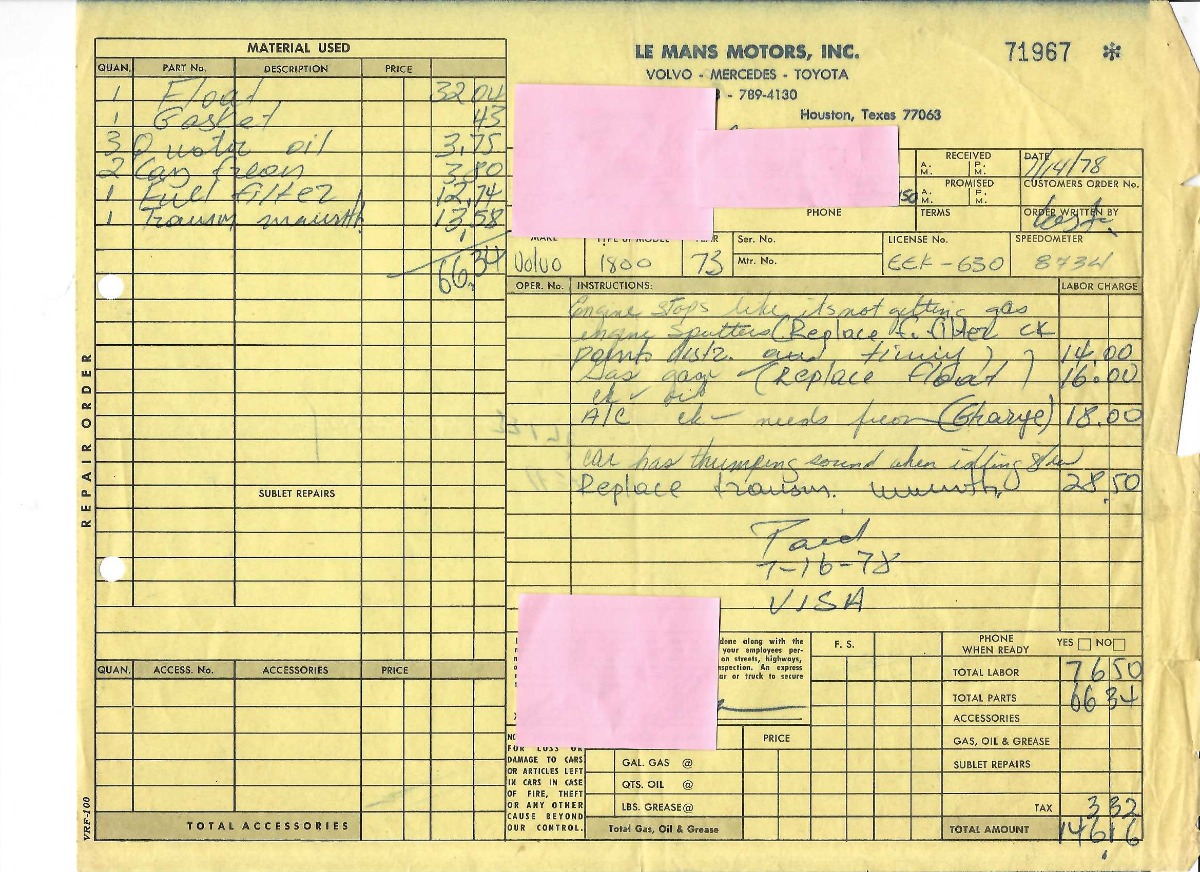 MATERIAL USED
QUAN. PART No. DESCRIPTION PRICE
1 Float 32 04
1 Gasket 43
3 Q motor oil 3.75
2 Can freon 3.80
1 Fuel filter 12.74
1 Transm 13.58
66.34
REPAIR ORDER
SUBLET REPAIRS
QUAN. ACCESS. No. ACCESSORIES PRICE
TOTAL ACCESSORIES
VRF-100
LE MANS MOTORS, INC.
71967 *
VOLVO - MERCEDES - TOYOTA
- 789-4130
Houston, Texas 77063
RECEIVED A. M. P. M.
DATE 7/14/78
PROMISED A. M. P. M.
CUSTOMERS ORDER No.
PHONE TERMS ORDER WRITTEN BY
MAKE TYPE OF MODEL YEAR Ser. No. LICENSE No. SPEEDOMETER
Volvo 1800 73 Mtr. No. EEK-630 8734
OPER. No. INSTRUCTIONS: LABOR CHARGE
Engine stops like its not getting gas
engine sputters (Replace f. filter ck
points distr. and timing) 14.00
Gas gage (Replace float) 16.00
ck oil
A/C ck - needs freon (Charge) 18.00
car has thumping sound when idling
Replace transm. 28.50
Paid
7-16-78
VISA
done along with the
your employees per-
on streets, highways,
inspection. An express
car or truck to secure
X
FOR LOSS OR
DAMAGE TO CARS
OR ARTICLES LEFT
IN CARS IN CASE
OF FIRE, THEFT
OR ANY OTHER
CAUSE BEYOND
OUR CONTROL.
PRICE
GAL. GAS @
QTS. OIL @
LBS. GREASE @
Total Gas, Oil & Grease
F. S.
PHONE WHEN READY YES NO
TOTAL LABOR 76 50
TOTAL PARTS 66 34
ACCESSORIES
GAS, OIL & GREASE
SUBLET REPAIRS
TAX 3 32
TOTAL AMOUNT 146 16